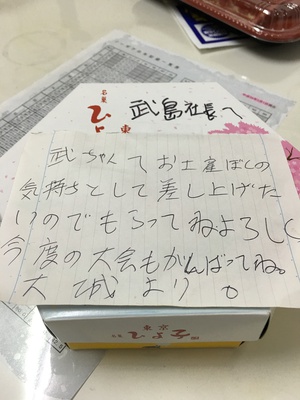 名菓
ひよ
東
武島社長へ
武ちゃんてお土産ぼくの
気持ちとして差し上げた
いのでもらってねよろしく
今度の大会もがんばってね。
大城より
東京
名菓 ひよ子